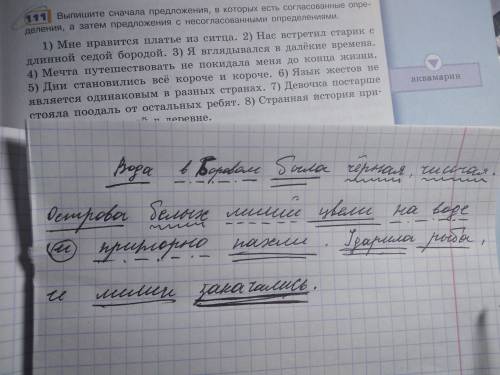 111 Выпишите сначала предложения, в которых есть согласованные опре-
деления, а затем предложения с несогласованными определениями.
1) Мне нравится платье из ситца. 2) Нас встретил старик с
длинной седой бородой. 3) Я вглядывался в далёкие времена.
4) Мечта путешествовать не покидала меня до конца жизни.
5) Дни становились всё короче и короче. 6) Язык жестов не
является одинаковым в разных странах. 7) Девочка постарше
стояла поодаль от остальных ребят. 8) Странная история при-
в деревне.
аквамарин
Вода в Боровом была чёрная, чистая.
Острова белых лилий цвели на воде
и приторно пахли. Ударила рыба,
и лилии закачались.